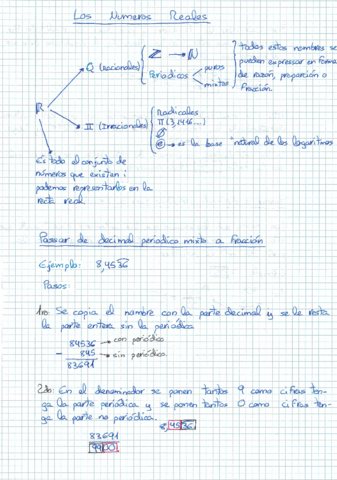 Los Números Reales
Z → N
Q (racionales)
Periódicos
puros
mixtos
Todos estos nombres se
pueden expressar en forma
de razón, proporción o
fracción.
R
II (Irracionales)
Radicales
π (3,1416...)
e → es la base "natural de los logaritmos
Es todo el conjunto de
números que existen i
podemos representarlos en la
recta real.
Passar de decimal periodico mixto a fracción
Ejemplo: 8,4536
Pasos:
1ro: Se copia el nombre con la parte decimal y se le resta
la parte entera sin la periódica
84536 → con periódica
- 845 → sin periódica.
83691
2do: En el denominador se ponen tantos 9 como cifras ten-
ga la parte periódica y se ponen tantos 0 como cifras ten-
ga la parte no periódica.
8,4536
83691
9900